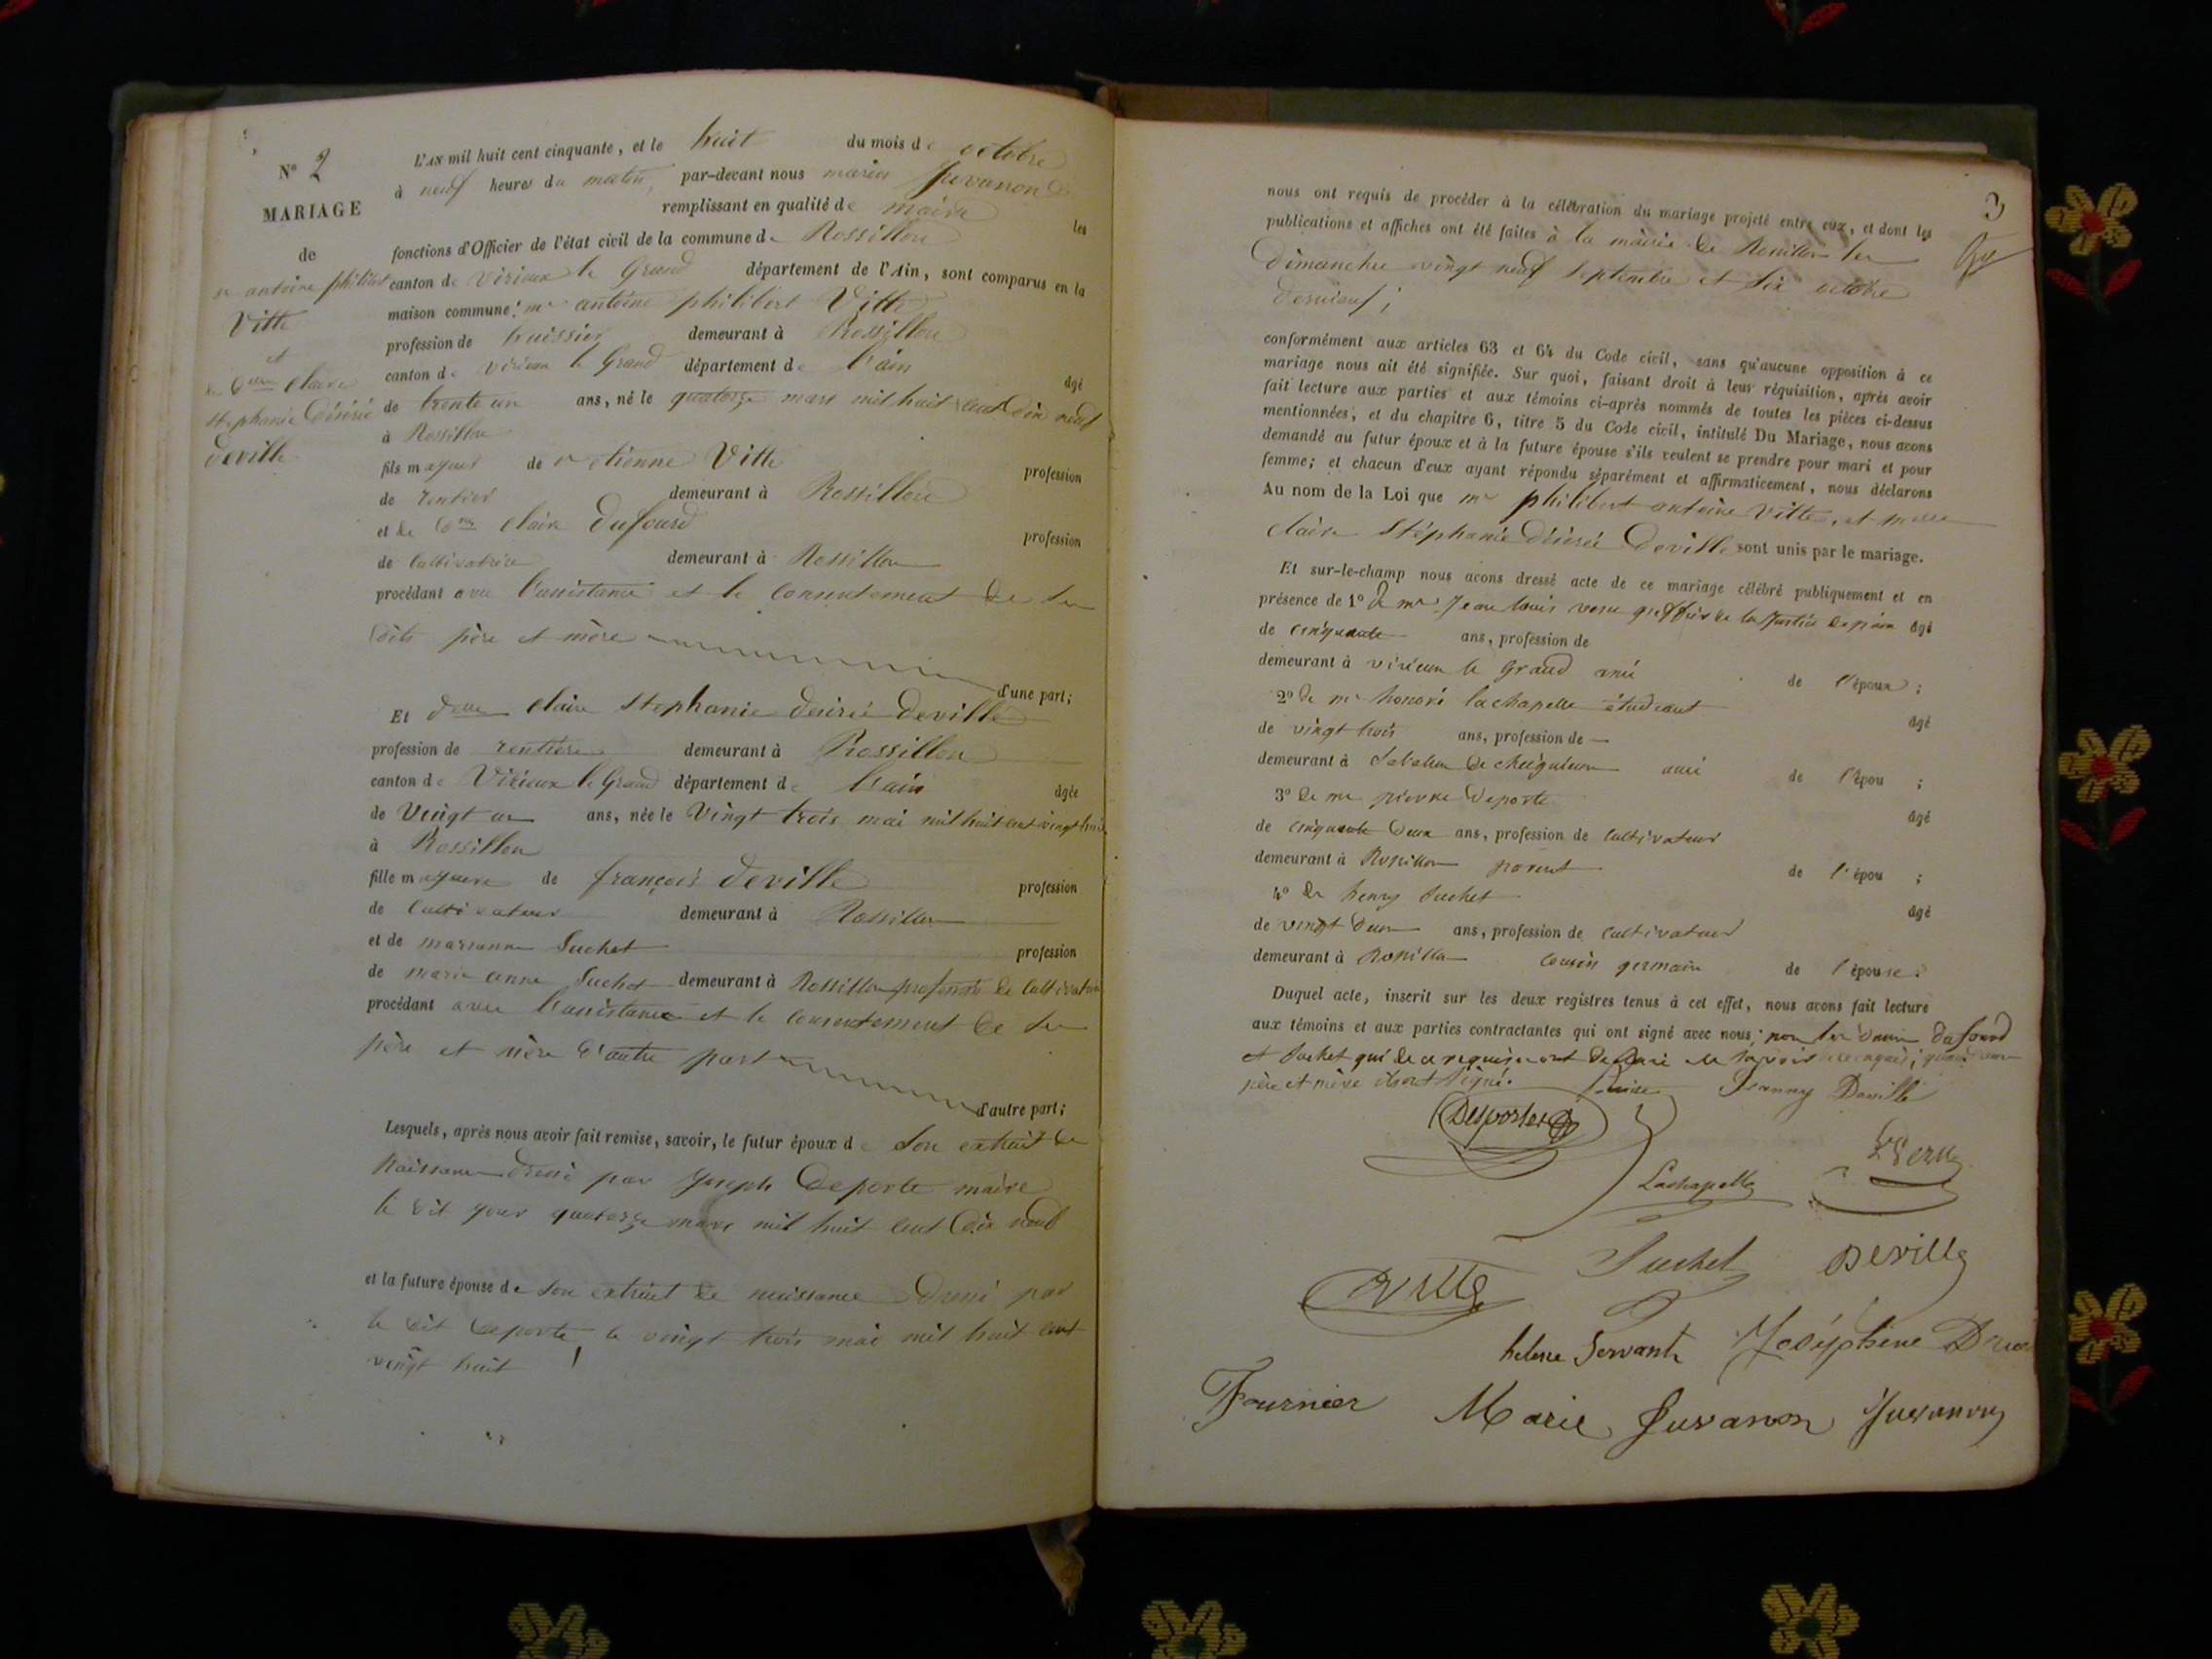 N° 2
MARIAGE
de
antoine philibert
Vitte
et
claire
stephanie désirée
deville
L'AN mil huit cent cinquante, et le huit du mois de octobre
à neuf heures du matin, par-devant nous Juvanon
remplissant en qualité de maire les
fonctions d'Officier de l'état civil de la commune de Rossillon
canton de Virieux le Grand département de l'Ain, sont comparus en la
maison commune: mr antoine philibert Vitte
profession de huissier demeurant à Rossillon
canton de virieux le Grand département de l'ain âgé
de trente un ans, né le quatorze mars mil huit cent dix neuf
à Rossillon
fils majeur de etienne Vitte profession
de rentier demeurant à Rossillon
et de claire Dufourd profession
de cultivatrice demeurant à Rossillon
procédant avec l'assistance et le consentement de ses
dits père et mère
d'une part;
Et delle claire stephanie desirée deville
profession de rentière demeurant à Rossillon
canton de Virieux le Grand département de l'ain âgée
de Vingt un ans, née le Vingt trois mai mil huit cent vingt huit
à Rossillon
fille majeure de françois deville profession
de cultivateur demeurant à Rossillon
et de marianne Suchet profession
de marie anne Suchet demeurant à Rossillon profession de cultivatrice
procédant avec l'assistance et le consentement de ses
père et mère d'autre part
d'autre part;
Lesquels, après nous avoir fait remise, savoir, le futur époux de son extrait de
naissance dressé par joseph Deporte maire
le dit jour quatorze mars mil huit cent dix neuf
et la future épouse de son extrait de naissance dressé par
le dit deporte, le vingt trois mai mil huit cent
vingt huit
3
nous ont requis de procéder à la célébration du mariage projeté entre eux, et dont les
publications et affiches ont été faites à la mairie de Rossillon les
Dimanches vingt neuf septembre et six octobre
derniers;
conformément aux articles 63 et 64 du Code civil, sans qu'aucune opposition à ce
mariage nous ait été signifiée. Sur quoi, faisant droit à leur réquisition, après avoir
fait lecture aux parties et aux témoins ci-après nommés de toutes les pièces ci-dessus
mentionnées, et du chapitre 6, titre 5 du Code civil, intitulé Du Mariage, nous avons
demandé au futur époux et à la future épouse s'ils veulent se prendre pour mari et pour
femme; et chacun d'eux ayant répondu séparément et affirmativement, nous déclarons
Au nom de la Loi que mr philibert antoine Vitte, et melle
claire Stéphanie désirée Deville sont unis par le mariage.
Et sur-le-champ nous avons dressé acte de ce mariage célébré publiquement et en
présence de 1° de mr Jean louis greffier de la Justice de paix âgé
de cinquante ans, profession de
demeurant à virieux le Grand ami de l'époux;
2° de mr honoré lachapelle étudiant âgé
de vingt trois ans, profession de —
demeurant à ami de l'épou ;
3° de mr pierre Deporte âgé
de cinquante deux ans, profession de cultivateur
demeurant à Rossillon parent de l'épou ;
4° de henry Suchet âgé
de vingt deux ans, profession de cultivateur
demeurant à Rossillon cousin germain de l'épouse.
Duquel acte, inscrit sur les deux registres tenus à cet effet, nous avons fait lecture
aux témoins et aux parties contractantes qui ont signé avec nous; non les Dufourd
et Suchet qui de ce requises ont
père et mère ont signé.
Jeanny Deville
Desportes
Lachapelle
Suchet Deville
Vitte
helene Servant Joséphine
Fournier Marie Juvanon Juvanon